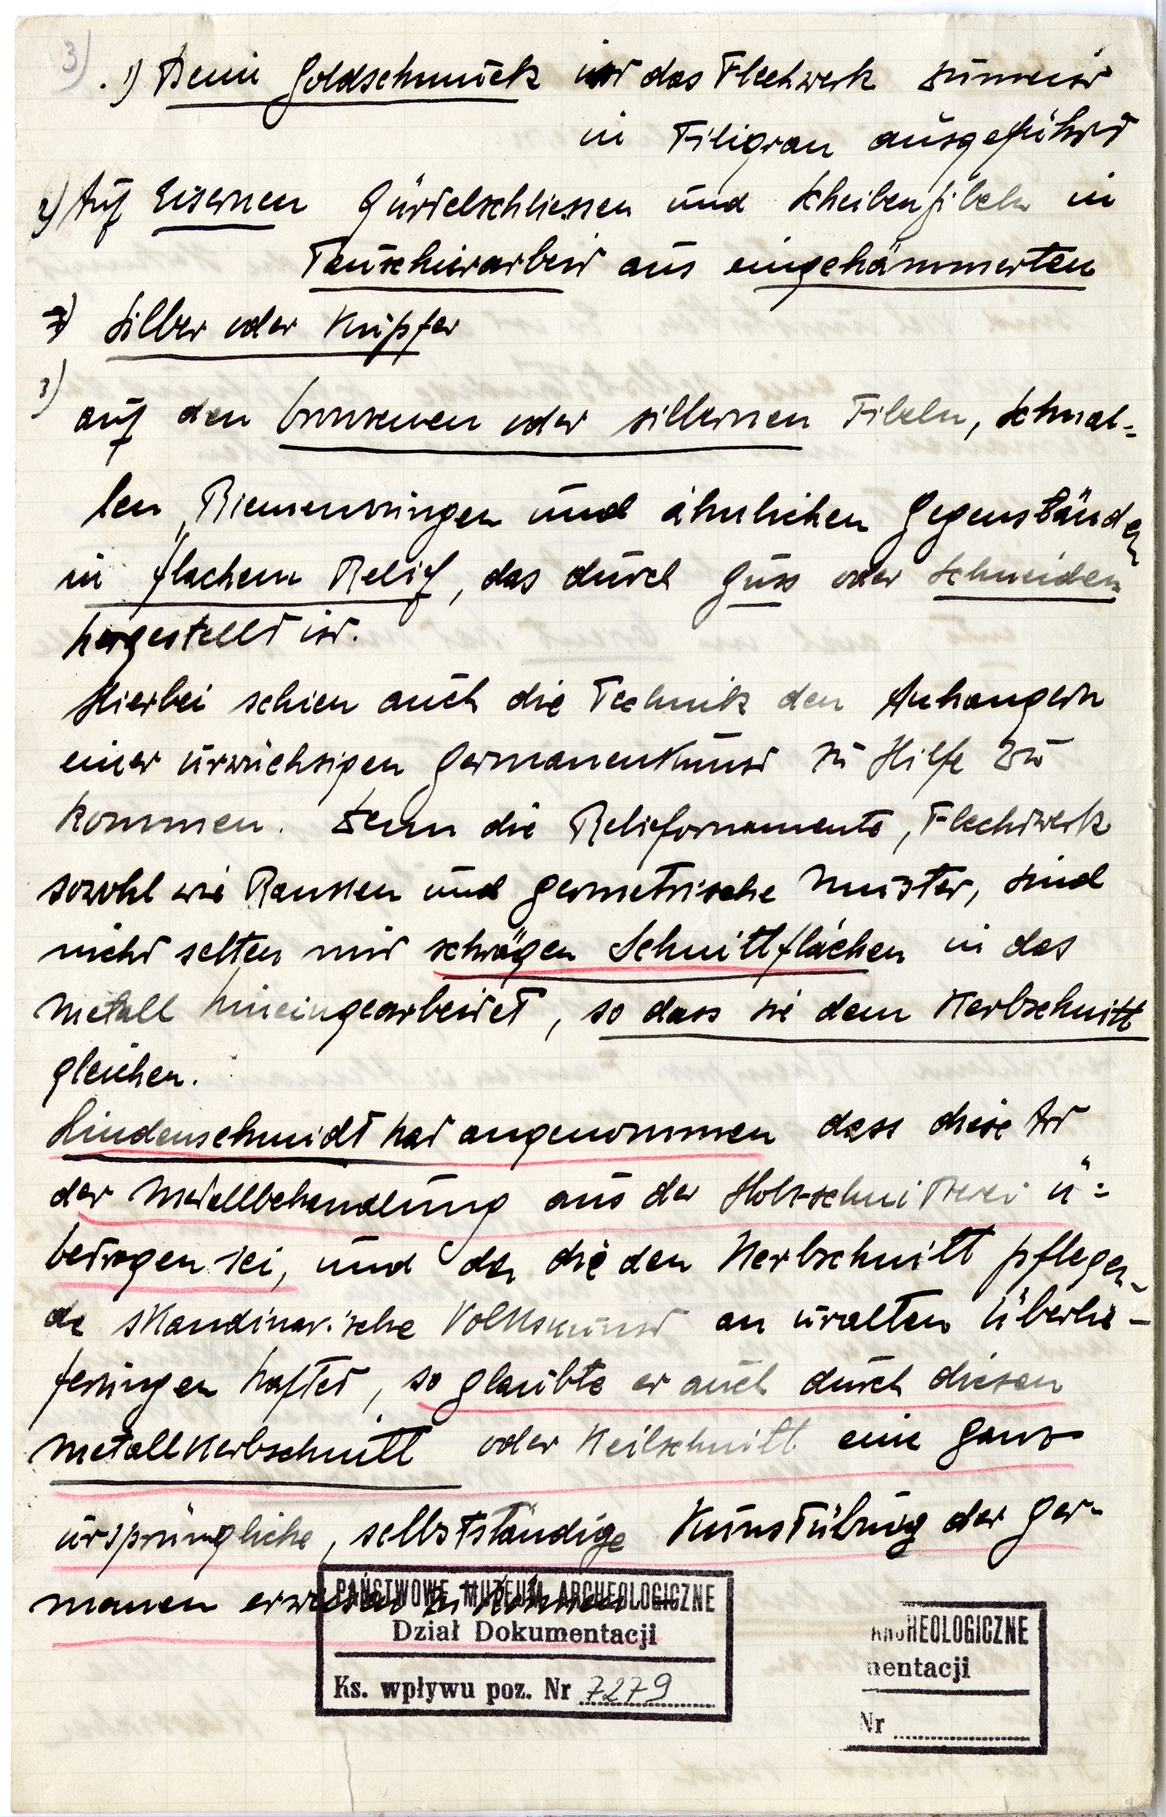 3)
1) Beim Goldschmuck ist das Flechwerk zumeist
in Filigran ausgeführt
2) Auf Eisernen Gürtelschliessen und Scheibenfibeln in
Tauschierarbeit aus eingehämmerten
Silber oder Kupfer
3)
auf den bronzenen oder silbernen Fibeln, Schnal-
len, Riemenzungen und ähnlichen Gegenständen
in flachem Relief, das durch Guss oder Schneiden
hergestellt ist.
Hierbei schien auch die Technik den Anhangern
einer urwüchsigen Germanenkunst zu Hilfe zu
kommen. Denn die Reliefornamente, Flechtwerk
sowohl wie Ranken und geometrische Muster, sind
nicht selten mit schrägen Schnittflächen in das
Metall hineingearbeitet, so dass sie dem Kerbschnitt
gleichen.
Lindenschmidt hat angenommen dass diese Art
der Metallbehandlung aus der Holzschnitzerei ü=
betragen sei, und da die den Kerbschnitt pflegen-
de skandinavische Volkskunst an uralten Überlie-
ferungen haftet, so glaubte er auch durch diesen
Metallkerbschnitt oder Keilschnitt eine ganz
ursprüngliche, selbstständige Kunstübung der Ger-
manen erweisen zu können
PAŃSTWOWE MUZEUM ARCHEOLOGICZNE
Dział Dokumentacji
Ks. wpływu poz. Nr 7279
ARCHEOLOGICZNE
mentacji
Nr